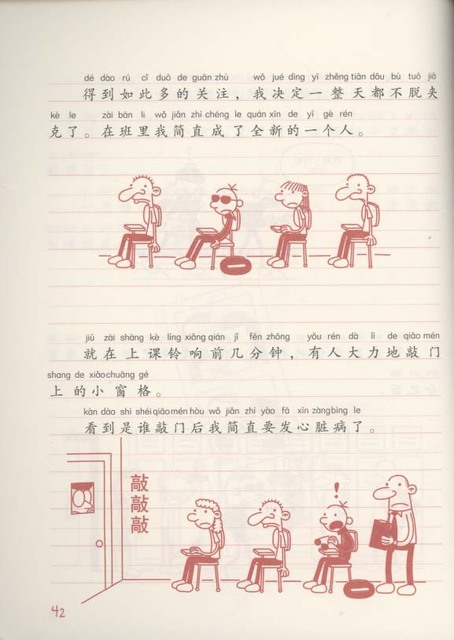 dé dào rú cǐ duō de guān zhù wǒ jué dìng yì zhěng tiān dōu bù tuō jiá
得到如此多的关注，我决定一整天都不脱夹
kè le zài bān lǐ wǒ jiǎn zhí chéng le quán xīn de yí gè rén
克了。在班里我简直成了全新的一个人。
jiù zài shàng kè líng xiǎng qián jǐ fēn zhōng yǒu rén dà lì de qiāo mén
就在上课铃响前几分钟，有人大力地敲门
shang de xiǎo chuāng gé
上的小窗格。
kàn dào shì shéi qiāo mén hòu wǒ jiǎn zhí yào fā xīn zàng bìng le
看到是谁敲门后我简直要发心脏病了。
敲
敲
敲
!
42